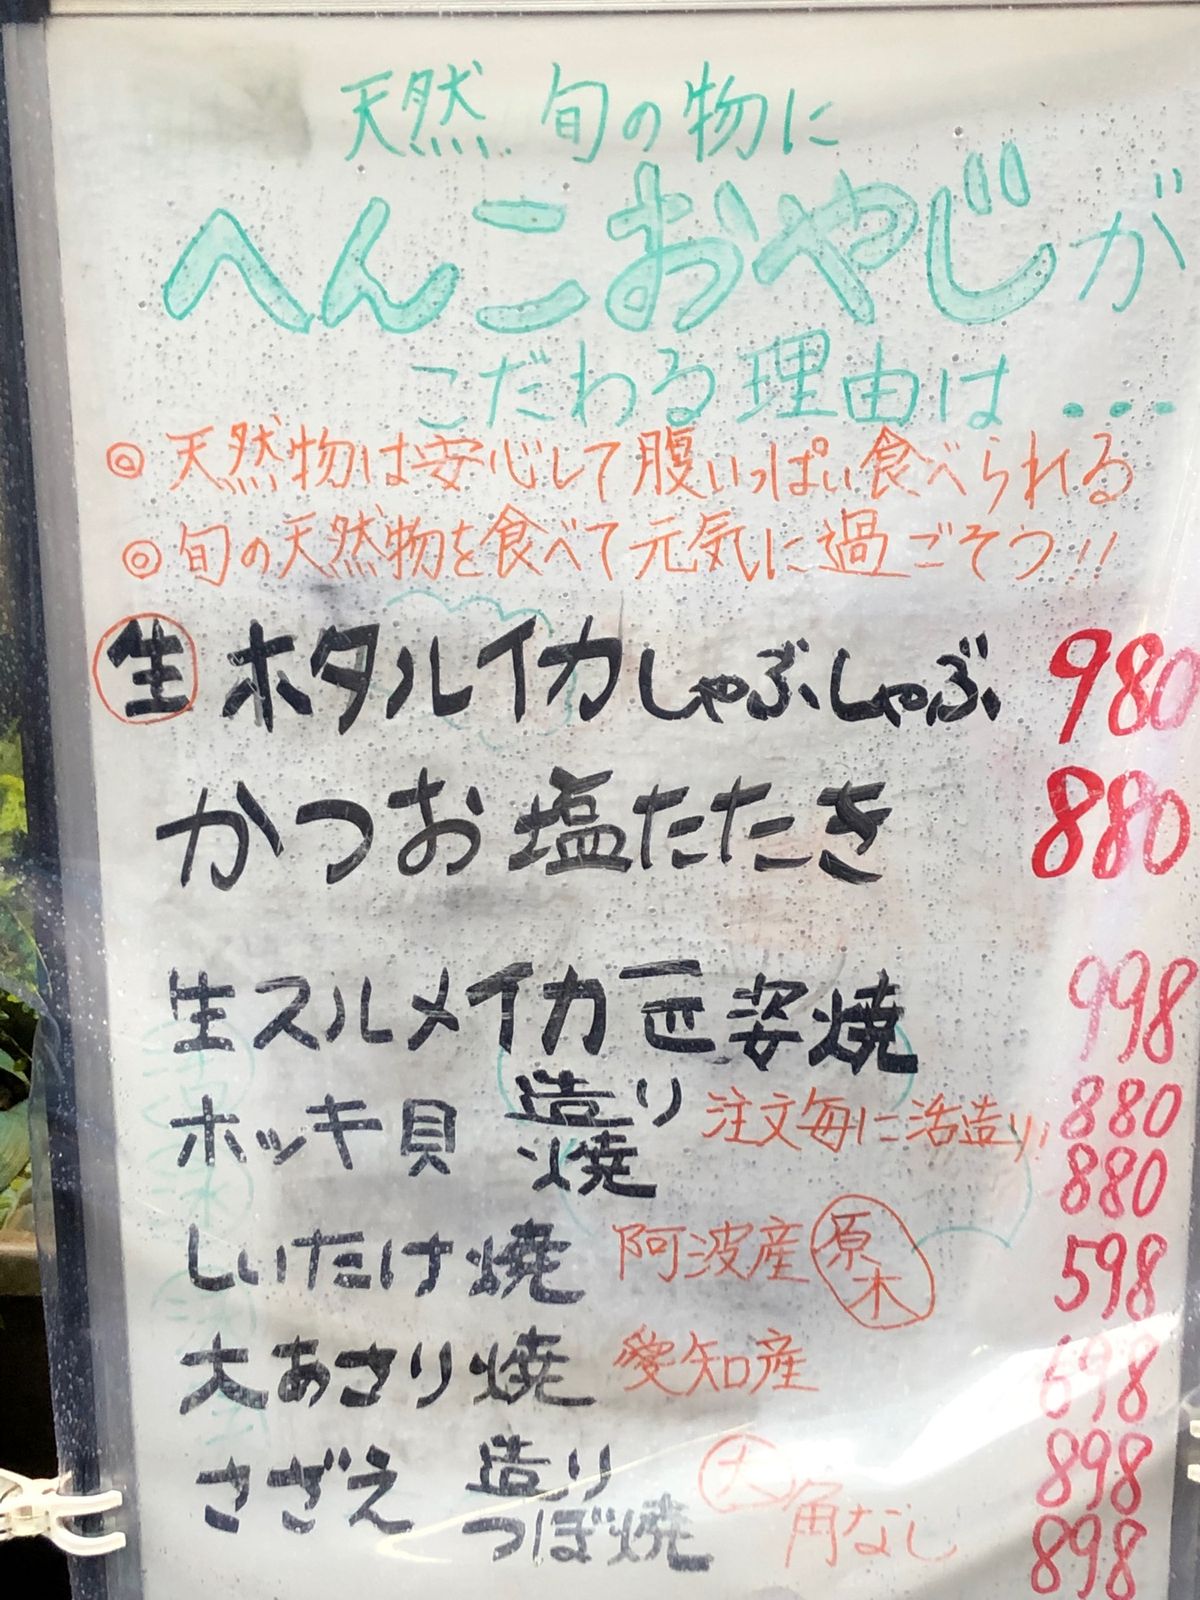 天然 旬の物に
へんこおやじが
こだわる理由は...
◎天然物は安心して腹いっぱい食べられる
◎旬の天然物を食べて元気に過ごそう!!
生 ホタルイカしゃぶしゃぶ 980
かつお塩たたき 880
生スルメイカ一匹姿焼 998
ホッキ貝 造り 注文毎に活造り! 880
焼 880
しいたけ焼 阿波産 原木 598
大あさり焼 愛知産 698
さざえ 造り 大 角なし 898
つぼ焼 898